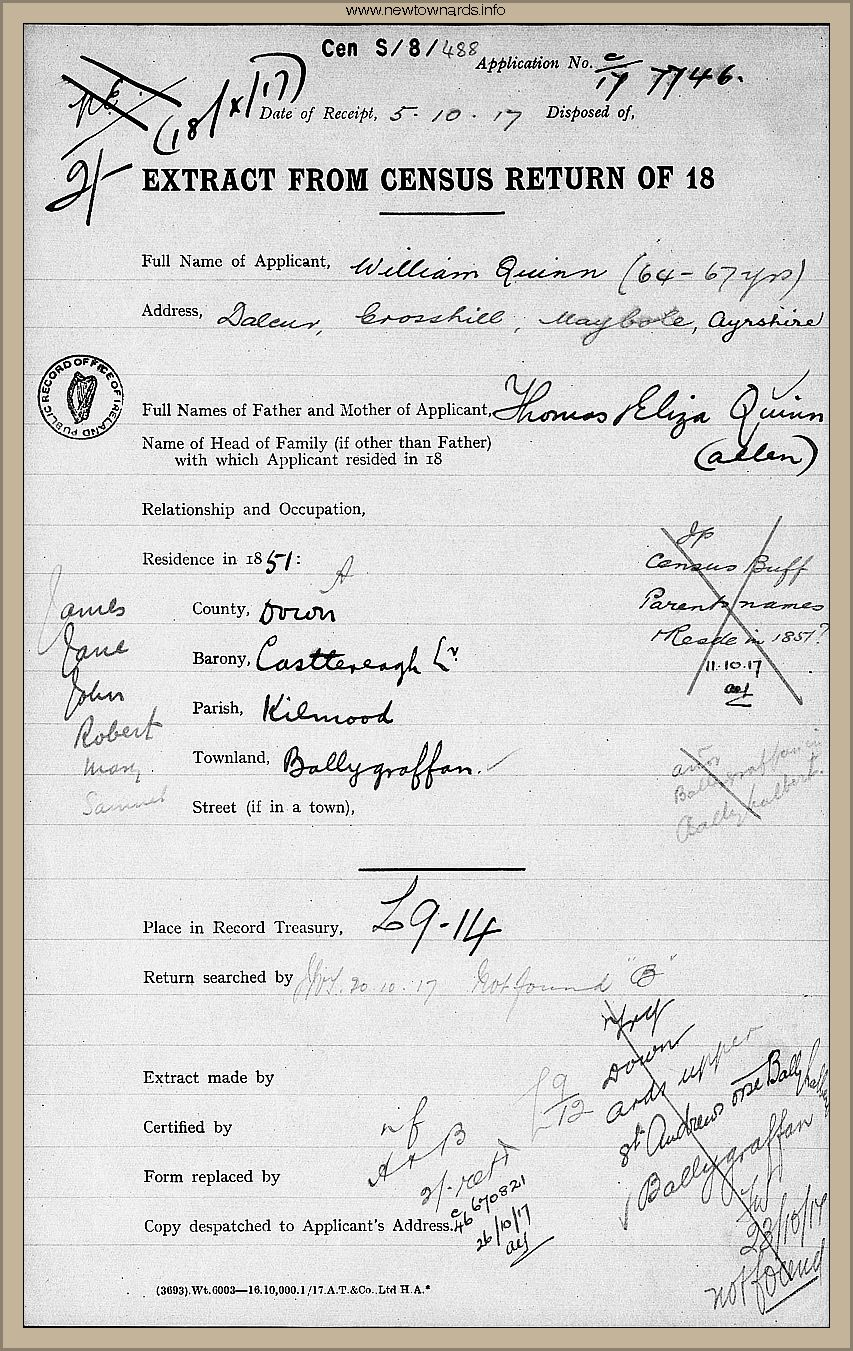 www.newtownards.info
Cen S/8/488
Application No. c/17 7746.
(18/X/17)
Date of Receipt, 5 - 10 - 17 Disposed of,
2/-
EXTRACT FROM CENSUS RETURN OF 18
Full Name of Applicant, William Quinn (64-67 yrs)
Address, Crosshill, Maybole, Ayrshire
PUBLIC RECORD OFFICE OF IRELAND
Full Names of Father and Mother of Applicant, Thomas Eliza Quinn
(allen)
Name of Head of Family (if other than Father)
with which Applicant resided in 18
Relationship and Occupation,
Residence in 1851:
A
County, Down
Barony, Castlereagh Lr.
Parish, Kilmood
Townland, Ballygraffan.
Street (if in a town),
James
Jane
John
Robert
Mary
Samuel
Census Buff
Parents names
Reside in 1851?
11.10.17
Ballygraffan in
Ballyhalbert.
Place in Record Treasury, L9-14
Return searched by 20.10.17 Not found "B"
Try
Down
ards upper
St Andrews Ballyhalbert
Ballygraffan
23/10/17
not found
L 9/12
Extract made by
Certified by
n f
A & B
Form replaced by
Copy despatched to Applicant's Address.
2/- retd
c/46 670821
26/10/17
(3693).Wt.6003—16.10,000.1/17.A.T.&Co.,Ltd H.A.*